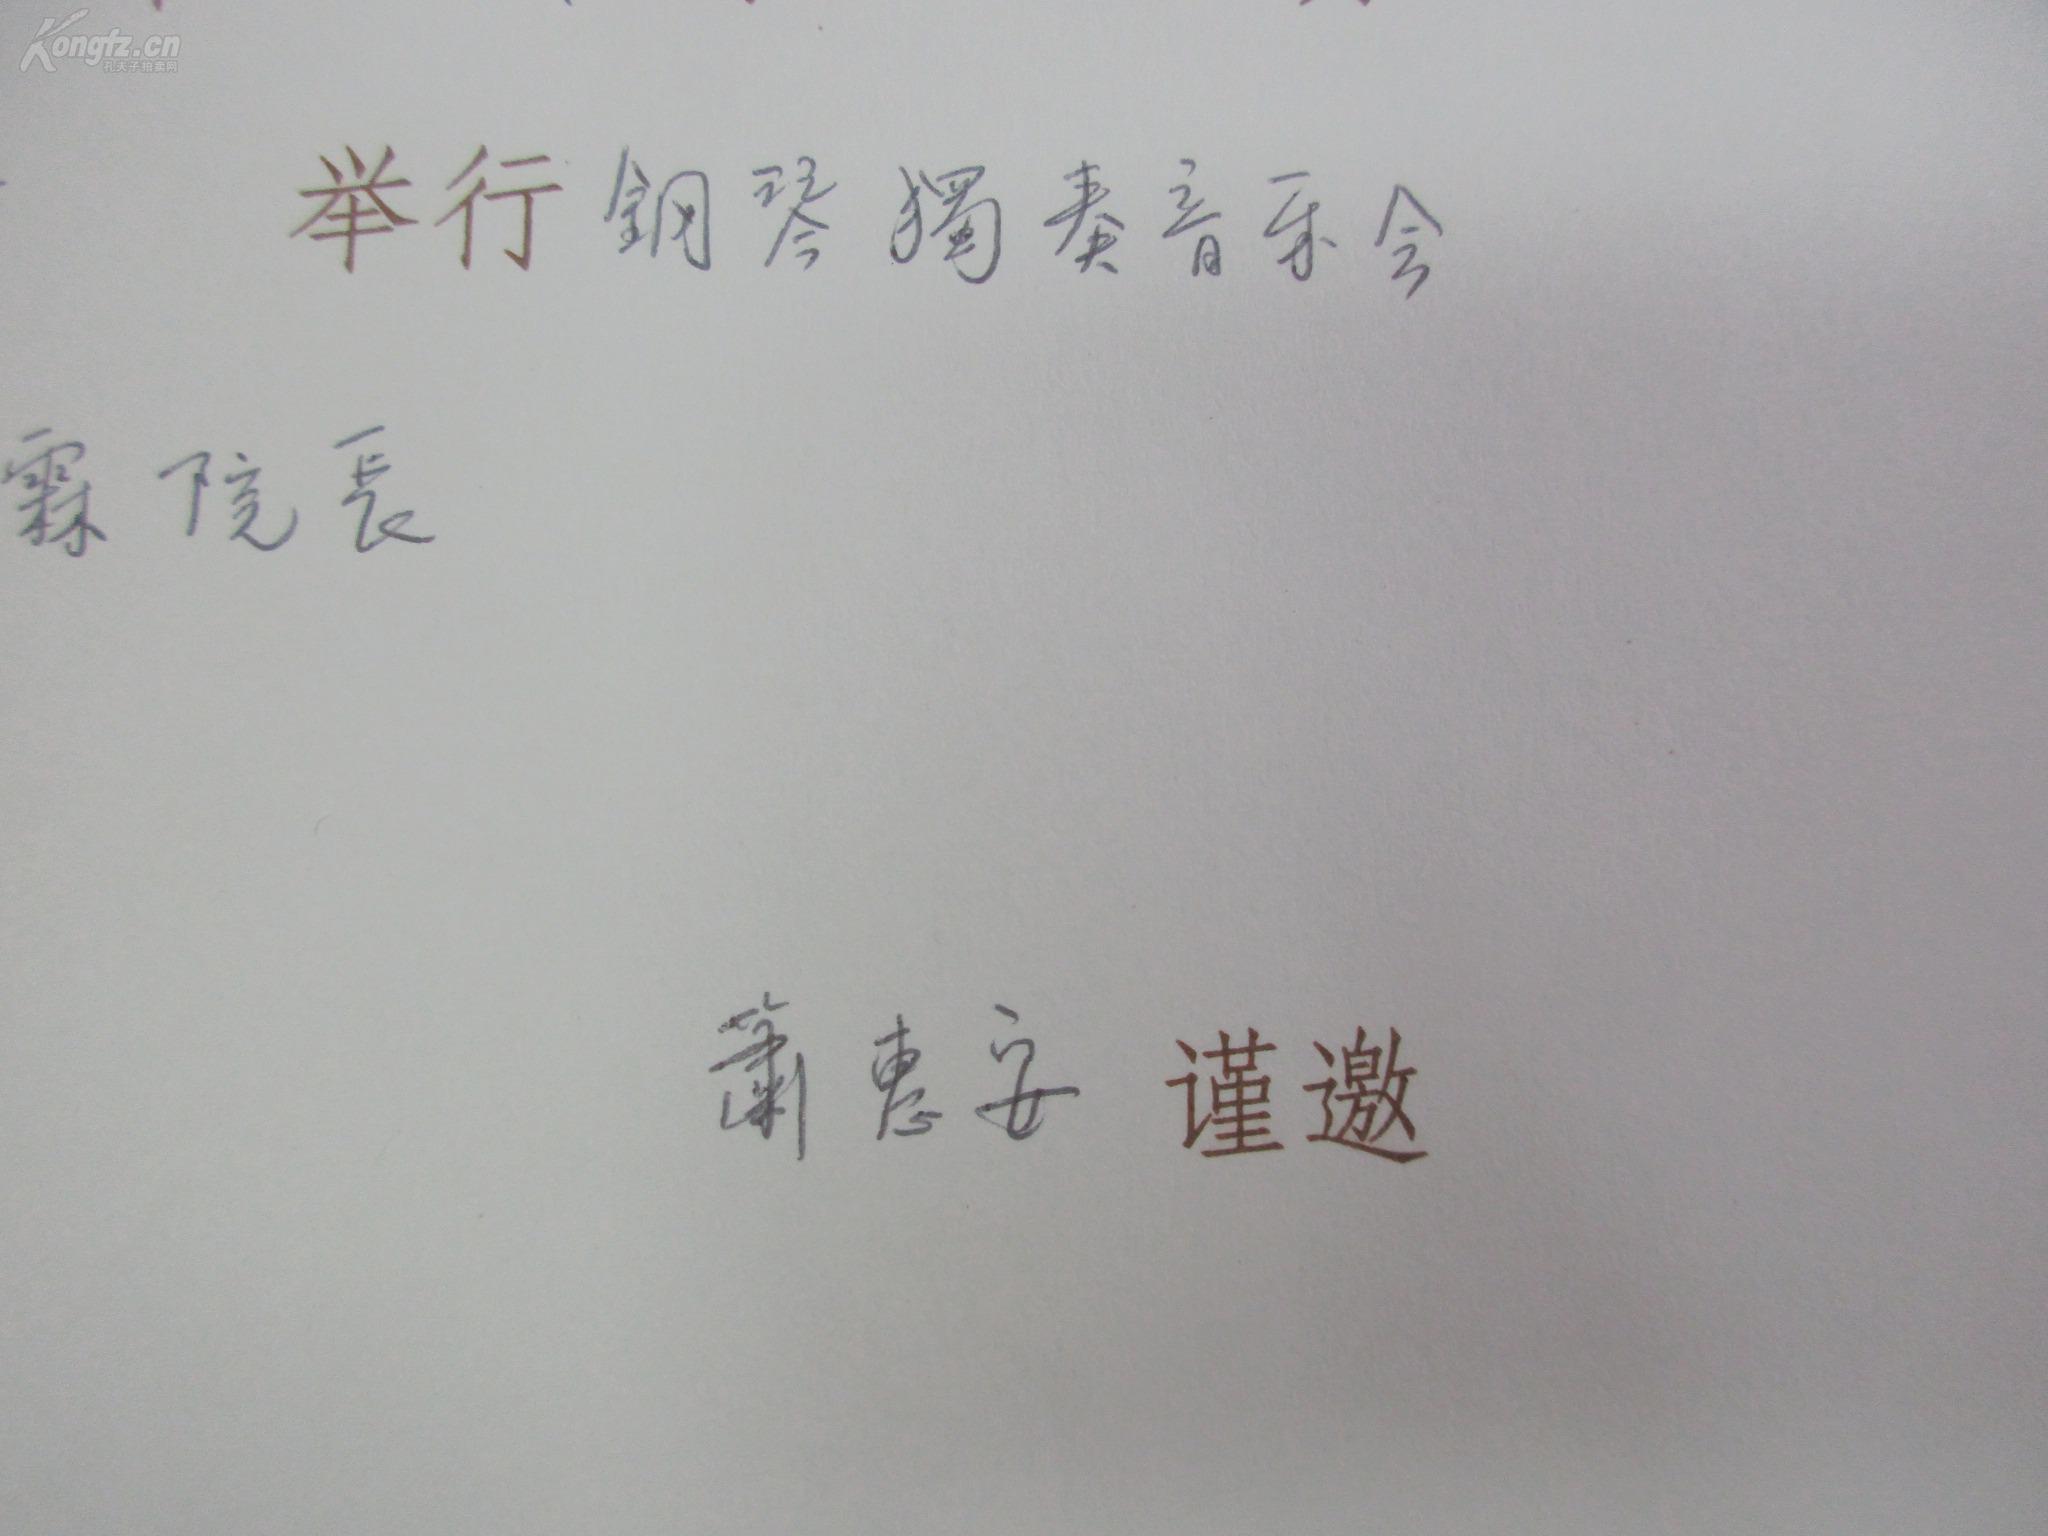 Kongfz.cn
孔夫子拍卖网
举行鋼琴獨奏音乐会
霖院長
蕭惠安 谨邀